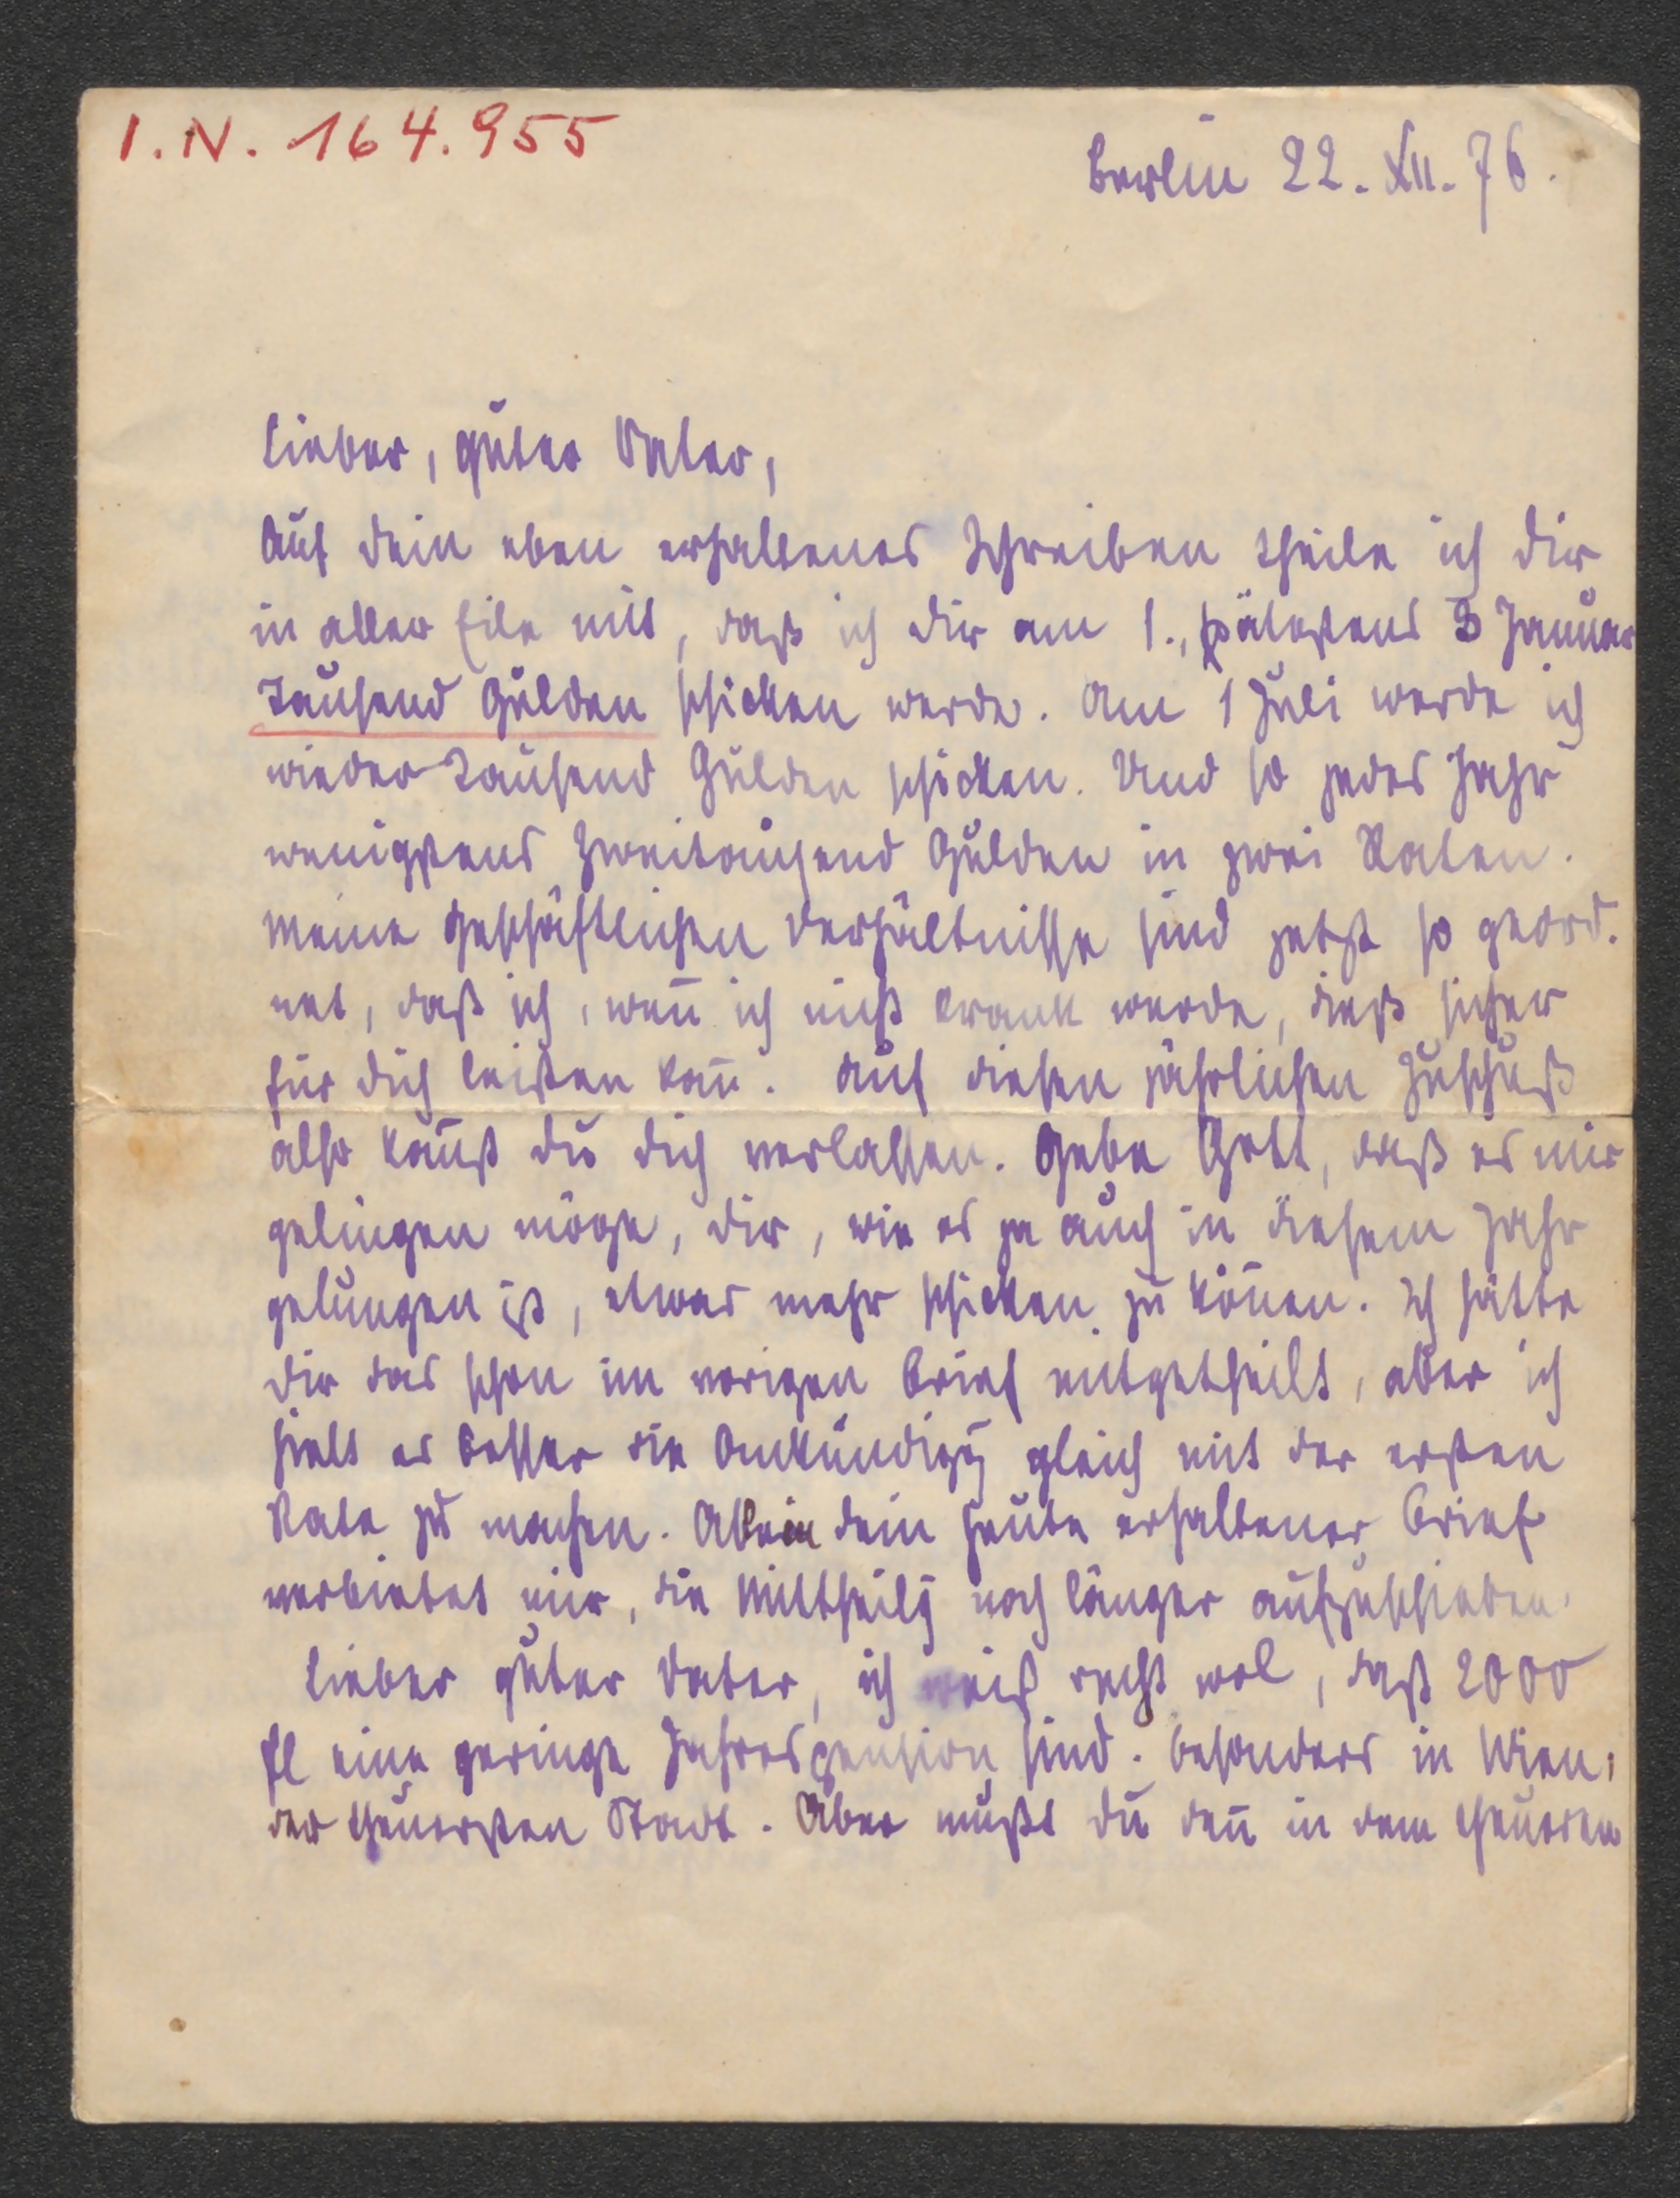 I.N. 164.955
Berlin 22. XII. 76.
Lieber, guter Vater,
Auf dein eben erhaltenes Schreiben theile ich dir
in aller Eile mit, daß ich dir am 1., spätestens 3 Januar
Tausend Gulden schicken werde. Am 1 Juli werde ich
wieder Tausend Gulden schicken. Und so jedes Jahr
wenigstens Zweitausend Gulden in zwei Raten.
Meine geschäftlichen Verhältnisse sind jetzt so geord-
net, daß ich, wen̅ ich nicht krank werde, dieß sicher
für dich leisten kan̅. Auf diesen jährlichen Zuschuß
also kan̅st du dich verlassen. Gebe Gott, daß es mir
gelingen möge, dir, wie es ja auch in diesem Jahr
gelungen ist, etwas mehr schicken zu kön̅en. Ich hätte
dir das schon im vorigen Brief mitgetheilt, aber ich
hielt es besser die Ankündigg gleich mit der ersten
Rate zu machen. Allein dein heute erhaltener Brief
verbietet mir, die Mittheilg noch länger aufzuschieben.
Lieber guter Vater, ich weiß recht wol, daß 2000
fl eine geringe Jahrespension sind. besonders in Wien,
der theuersten Stadt. Aber mußt du den̅ in dem theueren